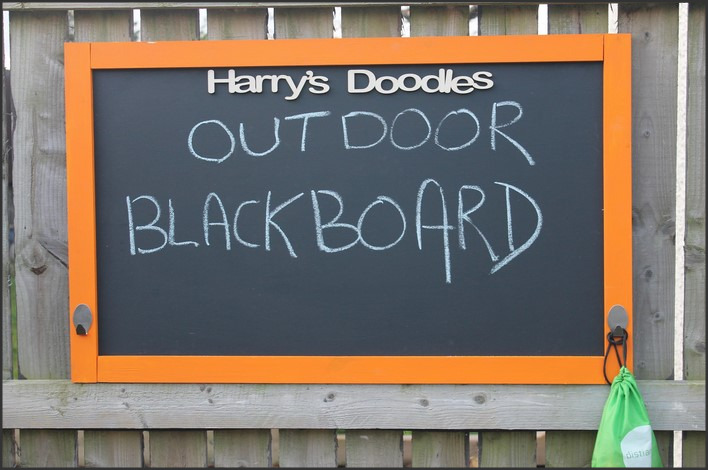 Harry's Doodles
OUTDOOR
BLACKBOARD